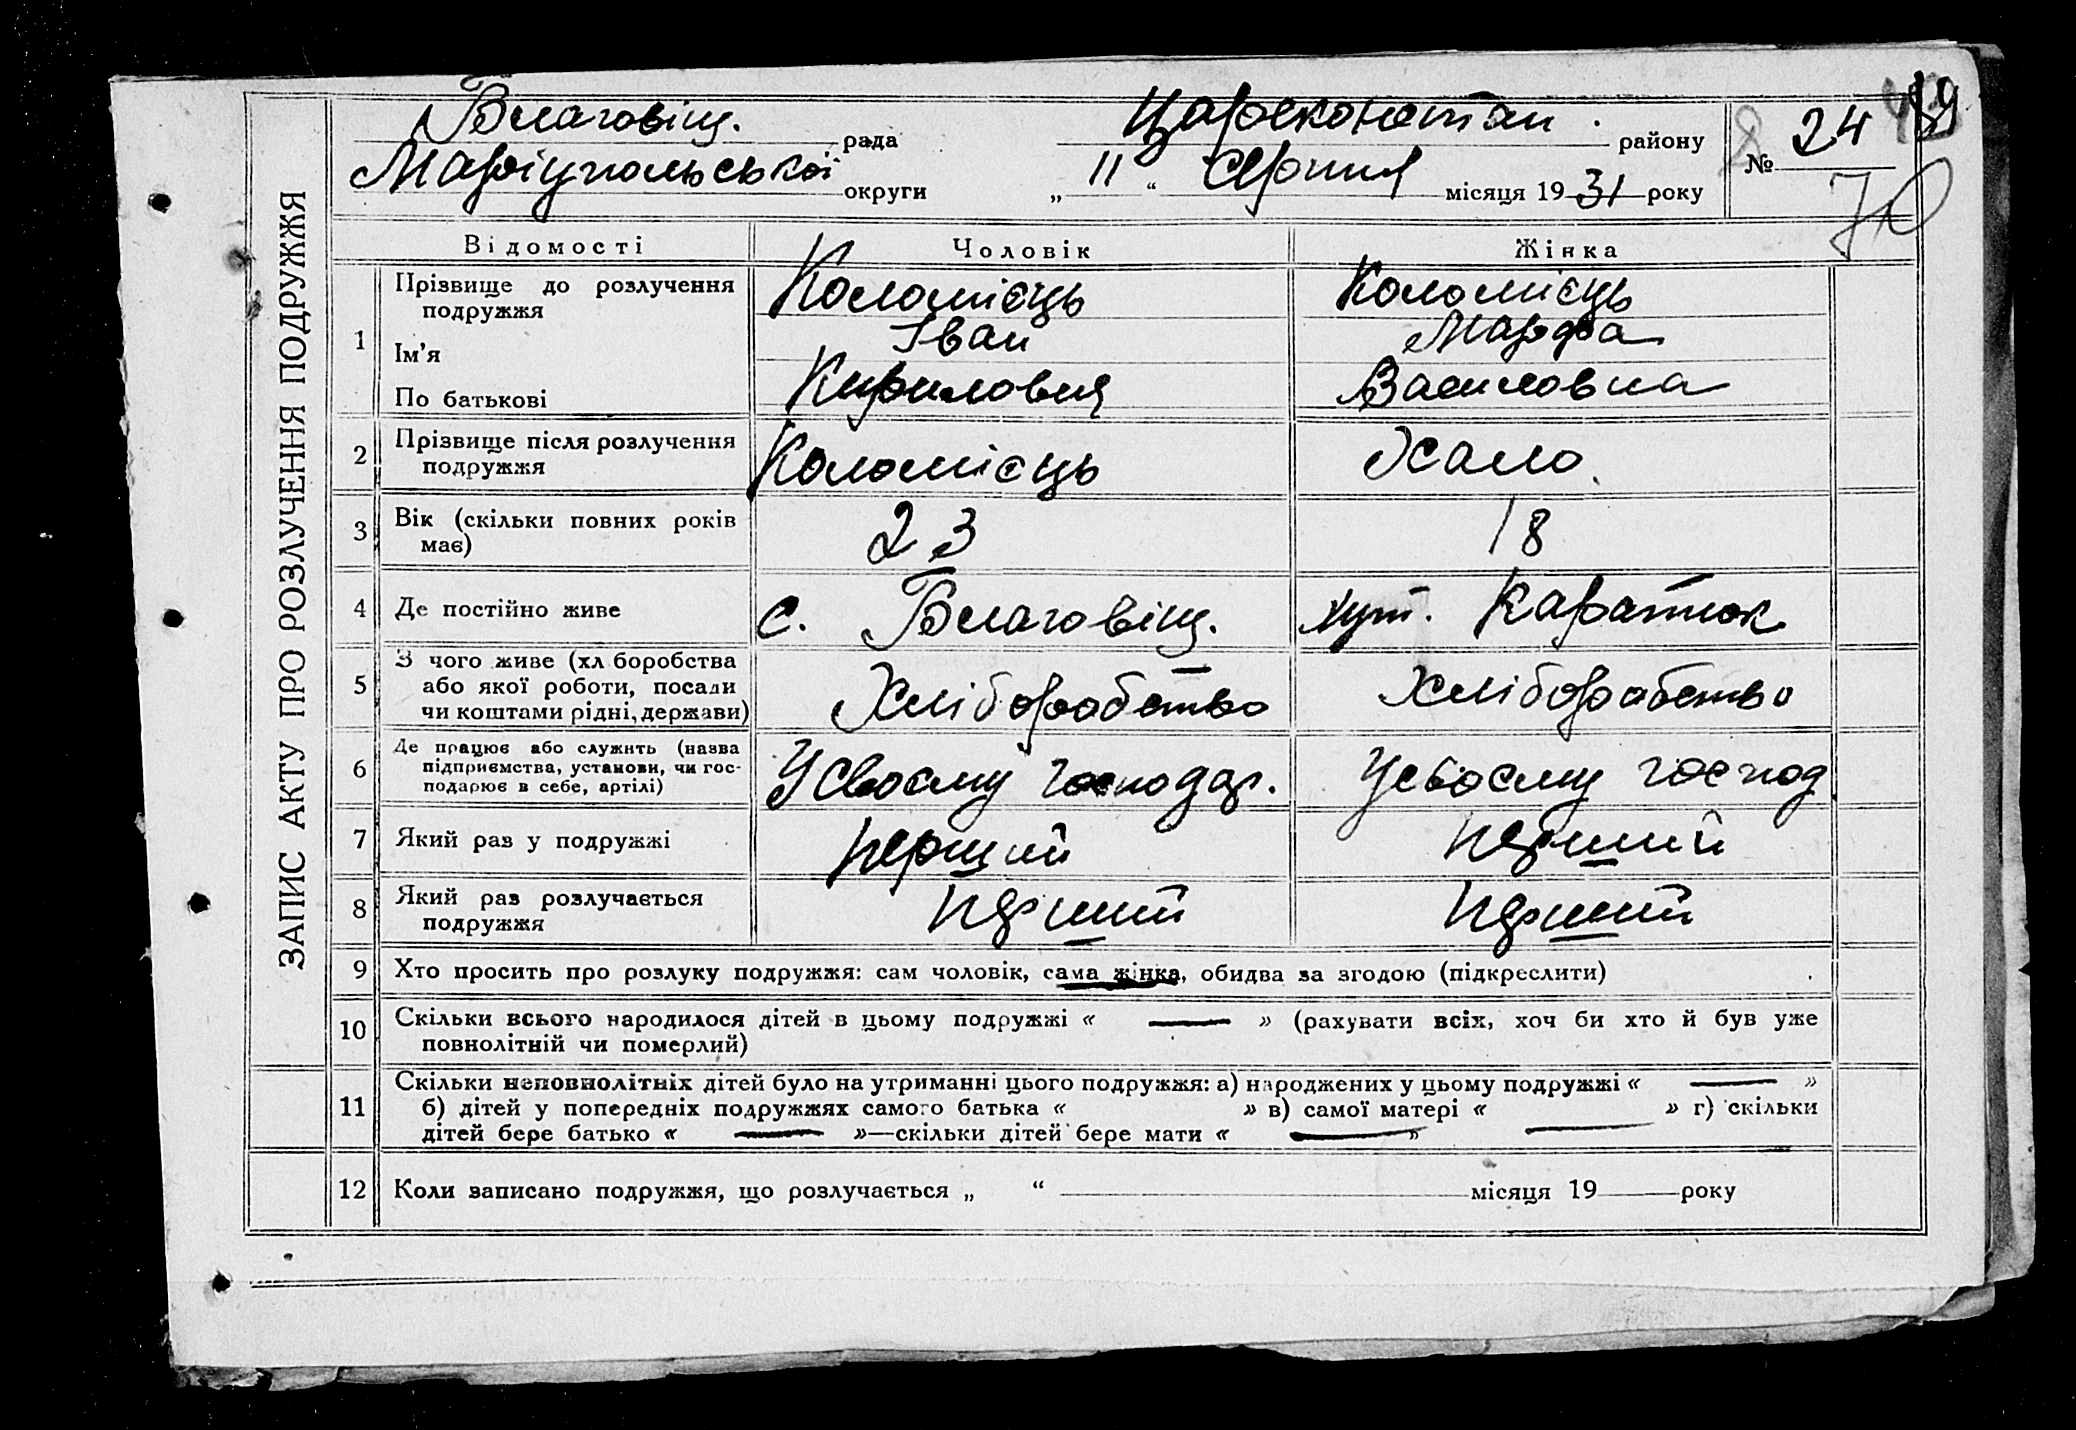 ЗАПИС АКТУ ПРО РОЗЛУЧЕННЯ ПОДРУЖЖЯ
Благовіщ. рада Цареконстан. району № 24
Маріупольської округи „ 11 “ серпня місяця 1931 року
70
Відомості Чоловік Жінка
1 Прізвище до розлучення подружжя Коломієць Коломієць
Ім'я Іван Марфа
По батькові Кирилович Василовна
2 Прізвище після розлучення подружжя Коломієць Хало
3 Вік (скільки повних років має) 23 18
4 Де постійно живе с. Благовіщ. хут. Каратюк
5 З чого живе (хл боробства або якої роботи, посади чи коштами рідні, держави) Хліборобство Хліборобство
6 Де працює або служить (назва підприємства, установи, чи господарює в себе, артілі) У своєму господар. У своєму господ
7 Який раз у подружжі перший перший
8 Який раз розлучається подружжя перший перший
9 Хто просить про розлуку подружжя: сам чоловік, сама жінка, обидва за згодою (підкреслити)
10 Скільки всього народилося дітей в цьому подружжі « — » (рахувати всіх, хоч би хто й був уже
повнолітній чи померлий)
11 Скільки неповнолітніх дітей було на утриманні цього подружжя: а) народжених у цьому подружжі « — »
б) дітей у попередніх подружжях самого батька « » в) самої матері « — » г) скільки
дітей бере батько « — »—скільки дітей бере мати « — »
12 Коли записано подружжя, що розлучається „ “ місяця 19 року